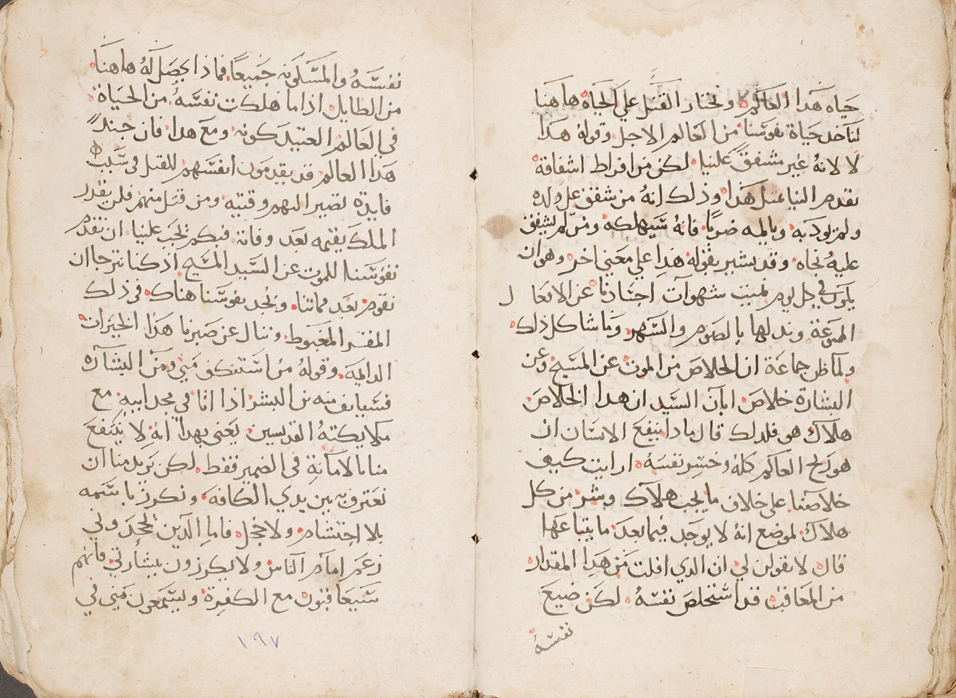 حياه هدا العالم ونختار القتل علي الحياة هاهنا
لناخد حياة نفوسنا من العالم الاجل وقوله هدا
لا لانه غير مشفق علينا لكن من افراط اشفاقة
يقدم الينا مثل هذا وذلك انه من شفق علي ولده
ولم يودبه ويالمه ضربا فانه سيهلكه ومن لم يشفق
عليه نجاه وقد يشير بقوله هدا علي معني اخر وهو ان
يكون في كل يوم نميت شهوات اجسادنا عن الافعال
الممنوعة وندلها بالصوم والسهر وما شاكل ذلك
ولما ظن جماعة ان الخلاص من الموت عن المسيح وعن
البشارة خلاص ابان السيد ان هدا الخلاص
هلاك هو فلدلك قال مادا ينفع الانسان ان
هو ربح العالم كله وخسر نفسه ارايت كيف
خلاصنا علي خلاف ما يجب هلاك وشر من كل
هلاك لموضع انه لا يوجد فيما بعد ما يبتاعها
قال لا تقولن لي ان الدي افلت من هدا المقدار
من المعاقب قد استخلص نفسه لكن ضيع
نفسه
نفسه والمسكونه جميعا فماذا يحصل له هاهنا
من الطايل اذا ما هلكت نفسه من الحياة
في العالم العتيد كونه ومع هدا فان جند
هدا العالم قد يقدمون انفسهم للقتل في سبب
فايدة تصير اليهم وقتيه ومن قتل منهم فلن يقدر
الملك يقيمه بعد وفاته فبكم يجب علينا ان نقدم
نفوسنا للموت عن السيد المسيح اذ كنا نترجا ان
نقوم بعد مماتنا ونجد نفوسنا هناك في ذلك
المقر المغبوط وننال عن صبرنا هدا الخيرات
الدايمة وقوله من استنكف مني ومن البشاره
فسيانف منه بن البشر اذا اتا في مجد ابيه مع
ملايكته القديسين يعني بهدا انه لا يكتفي
منا بالامانة في الضمير فقط لكن يريد منا ان
نعترف به بين يدي الكافه ونكرز باسمه
بلا احتشام ولا خجل فاما الذين يجحدوني
زعم امام الناس ولا يكرزون ببشارتي فانهم
سيعاقبون مع الكفرة ويسمعون مني في
١٩٧